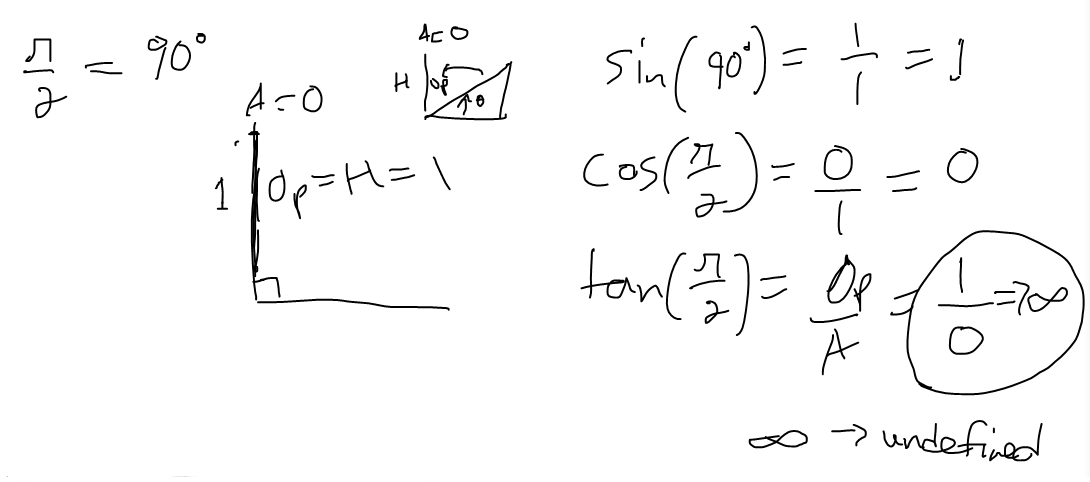 π/2 = 90°
A=0
1
Op=H=1
A=0
H
Op
θ
sin(90°) = 1/1 = 1
cos(π/2) = 0/1 = 0
tan(π/2) = Op/A = 1/0 => ∞
∞ → undefined